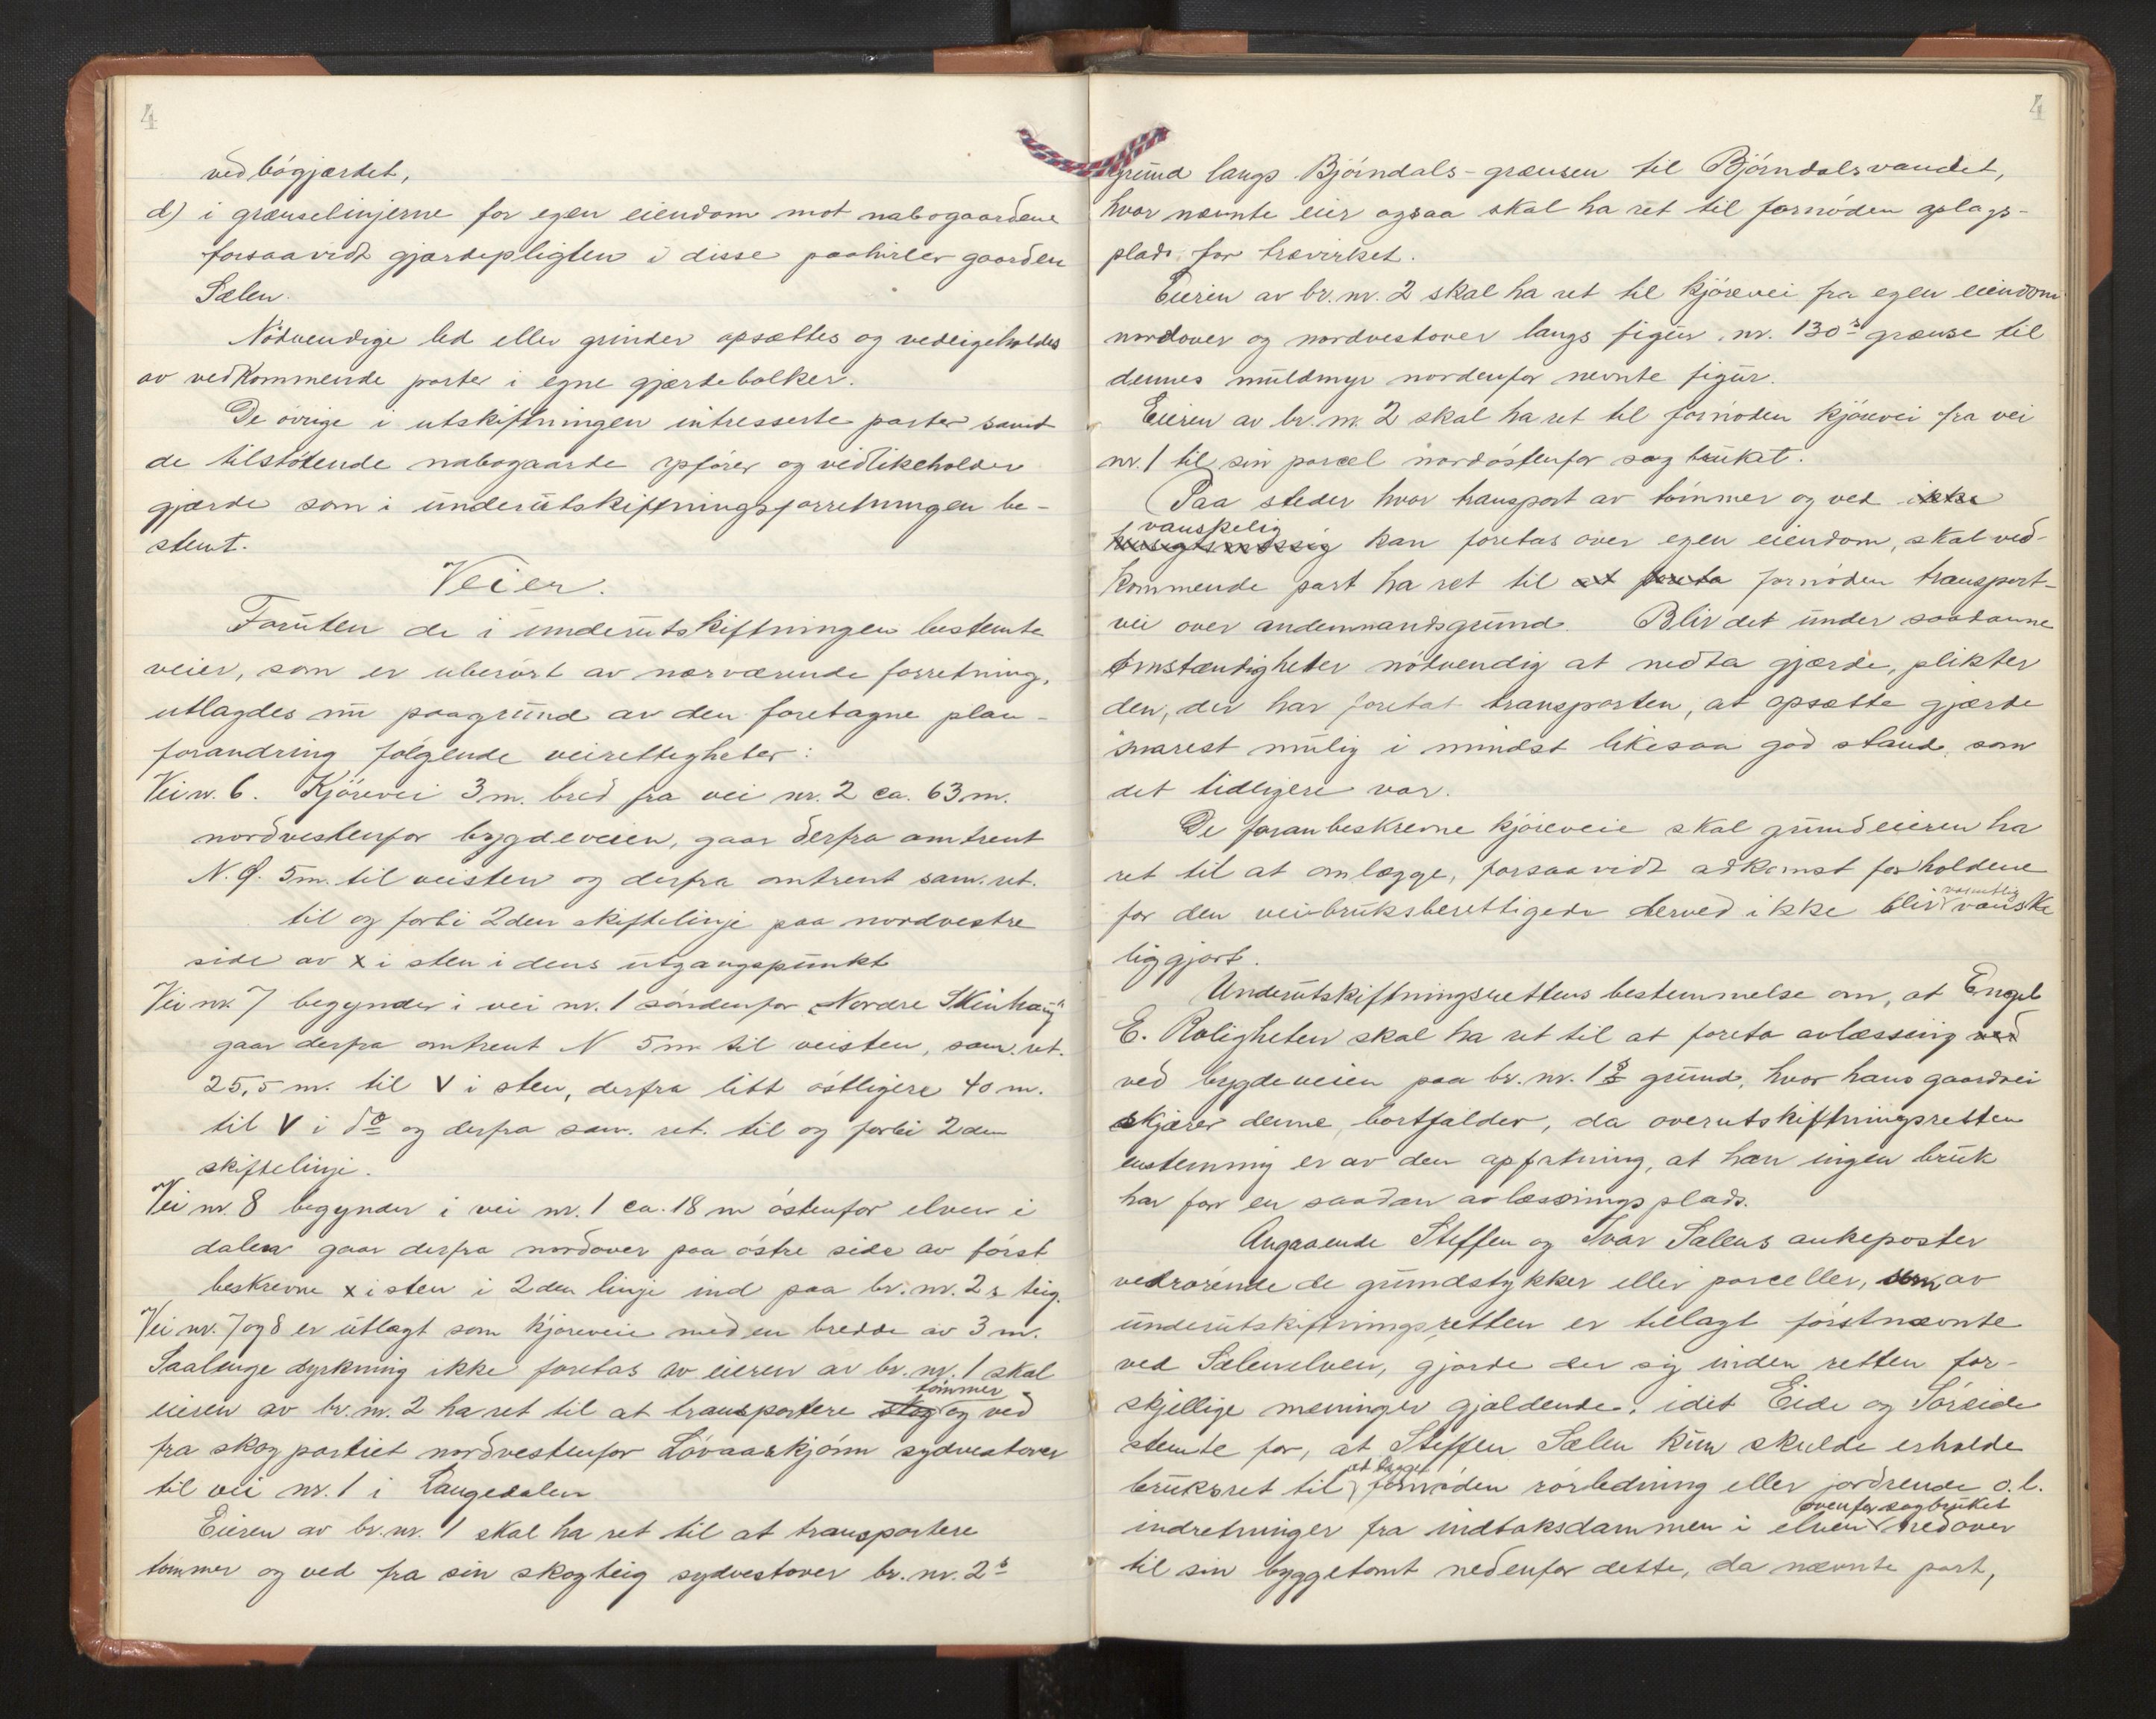 4
ved bøgjærdet,
d) i grænselinjerne for egen eiendom mot nabogaardene
forsaavidt gjærdepligten i disse paahviler gaarden
Sælen.
Nödvendige led eller grinder opsættes og vedligeholdes
av vedkommende parter i egne gjærdebolker.
De övrige i utskiftningen intresserte parter samt
de tilstötende nabogaarde opförer og vedlikeholder
gjærde som i underutskiftningsforretningen be-
stemt.
Veier.
Foruten de i underutskiftningen bestemte
veier, som er uberört av nærværende forretning,
utlagdes nu paagrund av den foretagne plan-
forandring fölgende veirettigheter:
Vei nr. 6. Kjörevei 3 m. bred fra vei nr. 2 ca. 63 m.
nordvestenfor bygdeveien, gaar derfra omtrent
N. Ø. 5 m. til veisten og derfra omtrent sam. ret.
til og forbi 2den skiftelinje paa nordvestre
side av x i sten i dens utgangspunkt
Vei nr. 7 begynder i vei nr. 1 söndenfor "Nordre Skinhaug"
gaar derfra omtrent N 5 m til veisten, sam. ret.
25,5 m. til V i sten, derfra litt östligere 40 m.
til V i do og derfra sam. ret. til og forbi 2den
skiftelinje.
Vei nr. 8 begynder i vei nr. 1 ca. 18 m östenfor elven i
dalen gaar derfra nordover paa östre side av först
beskrevne x i sten i 2den linje ind paa br. nr. 2s teig.
Vei nr. 7 og 8 er utlagt som kjöreveie med en bredde av 3 m.
Saalenge dyrkning ikke foretas av eieren av br. nr. 1 skal
tömmer
eieren av br. nr. 2 ha ret til at transportere skog og ved
fra skogpartiet nordvestenfor Lövaaskjönn sydvestover
til vei nr. 1 i Langedalen
Eieren av br. nr. 1 skal ha ret til at transportere
tömmer og ved fra sin skogteig sydvestover br. nr. 2s
4
grund langs Björndals-grænsen til Björndalsvandet,
hvor nævnte eier ogsaa skal ha ret til fornöden oplags-
plads for trævirket.
Eieren av br. nr. 2 skal ha ret til kjörevei fra egen eiendom
nordover og nordvestover langs figur nr. 130s grænse til
dennes muldmyr nordenfor nevnte figur.
Eieren av br. nr. 2 skal ha ret til fornöden kjörevei fra vei
nr. 1 til sin parcel nordöstenfor sagbruket.
Paa steder hvor transport av tömmer og ved ikke
vanskelig
kan foretas over egen eiendom, skal ved-
kommende part ha ret til at foreta fornöden transport-
vei over andenmandsgrund. Blir det under saadanne
omstændigheter nödvendig at nedta gjærde, plikter
den, der har foretat transporten, at opsætte gjærde
snarest mulig i mindst likesaa god stand, som
det tidligere var.
De foranbeskrevne kjöreveie skal grundeieren ha
ret til at omlægge, forsaavidt adkomst forholdene
væsentlig
for den veibruksberettigede derved ikke blir vanske
liggjort.
Underutskiftningsrettens bestemmelse om, at Engel
E. Roligheten skal ha ret til at foreta avlæssing ved
ved bygdeveien paa br. nr. 1s grund, hvor hans gaardvei
skjærer denne, bortfalder, da overutskiftningsretten
enstemmig er av den opfatning, at han ingen bruk
har for en saadan avlæssingsplads.
Angaaende Steffen og Ivar Sælens ankeposter
vedrörende de grundstykker eller parceller, som av
underutskiftningsretten er tillagt förstnævnte
ved Sælenelven, gjorde der sig inden retten for-
skjellige meninger gjældende, idet Eide og Söreide
stemte for, at Steffen Sælen kun skulde erholde
at lægge
bruksret til fornöden rörledning eller jordrende o.l.
ovenfor sagbruket
indretninger fra indtaksdammen i elven nedover
til sin byggetomt nedenfor dette, da nævnte part,